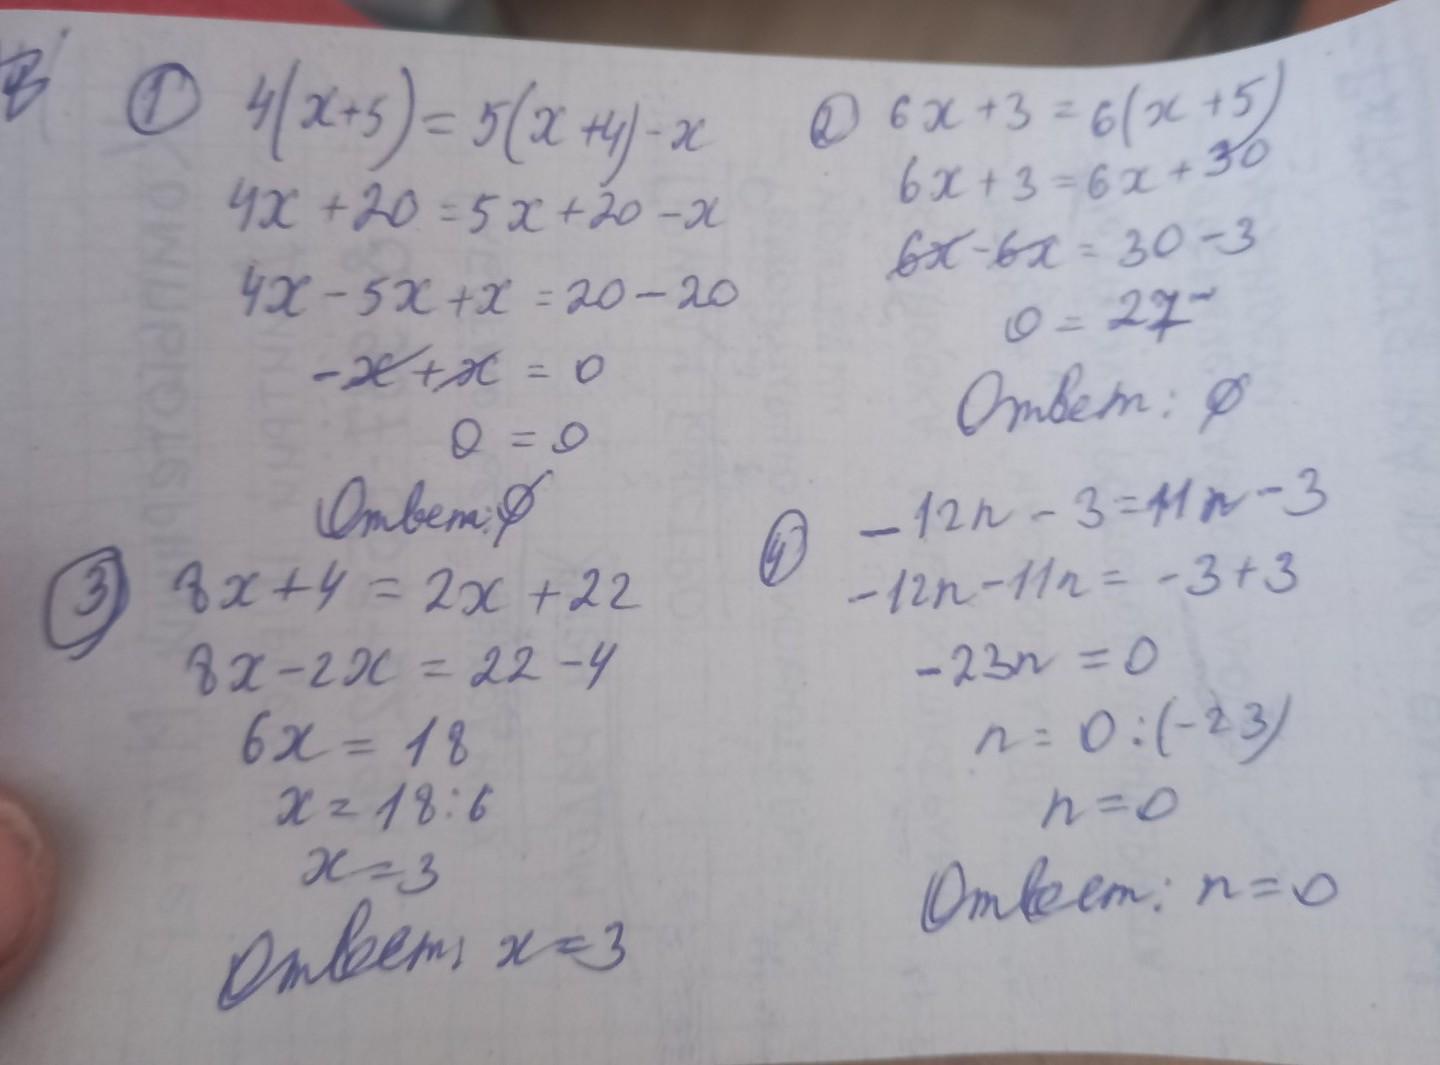 ① 4(x+5)=5(x+4)-x
4x+20=5x+20-x
4x-5x+x=20-20
-x+x=0
0=0
Ответ: ∅
② 6x+3=6(x+5)
6x+3=6x+30
6x-6x=30-3
0=27
Ответ: ∅
③ 8x+4=2x+22
8x-2x=22-4
6x=18
x=18:6
x=3
Ответ: x=3
④ -12n-3=11n-3
-12n-11n=-3+3
-23n=0
n=0:(-23)
n=0
Ответ: n=0